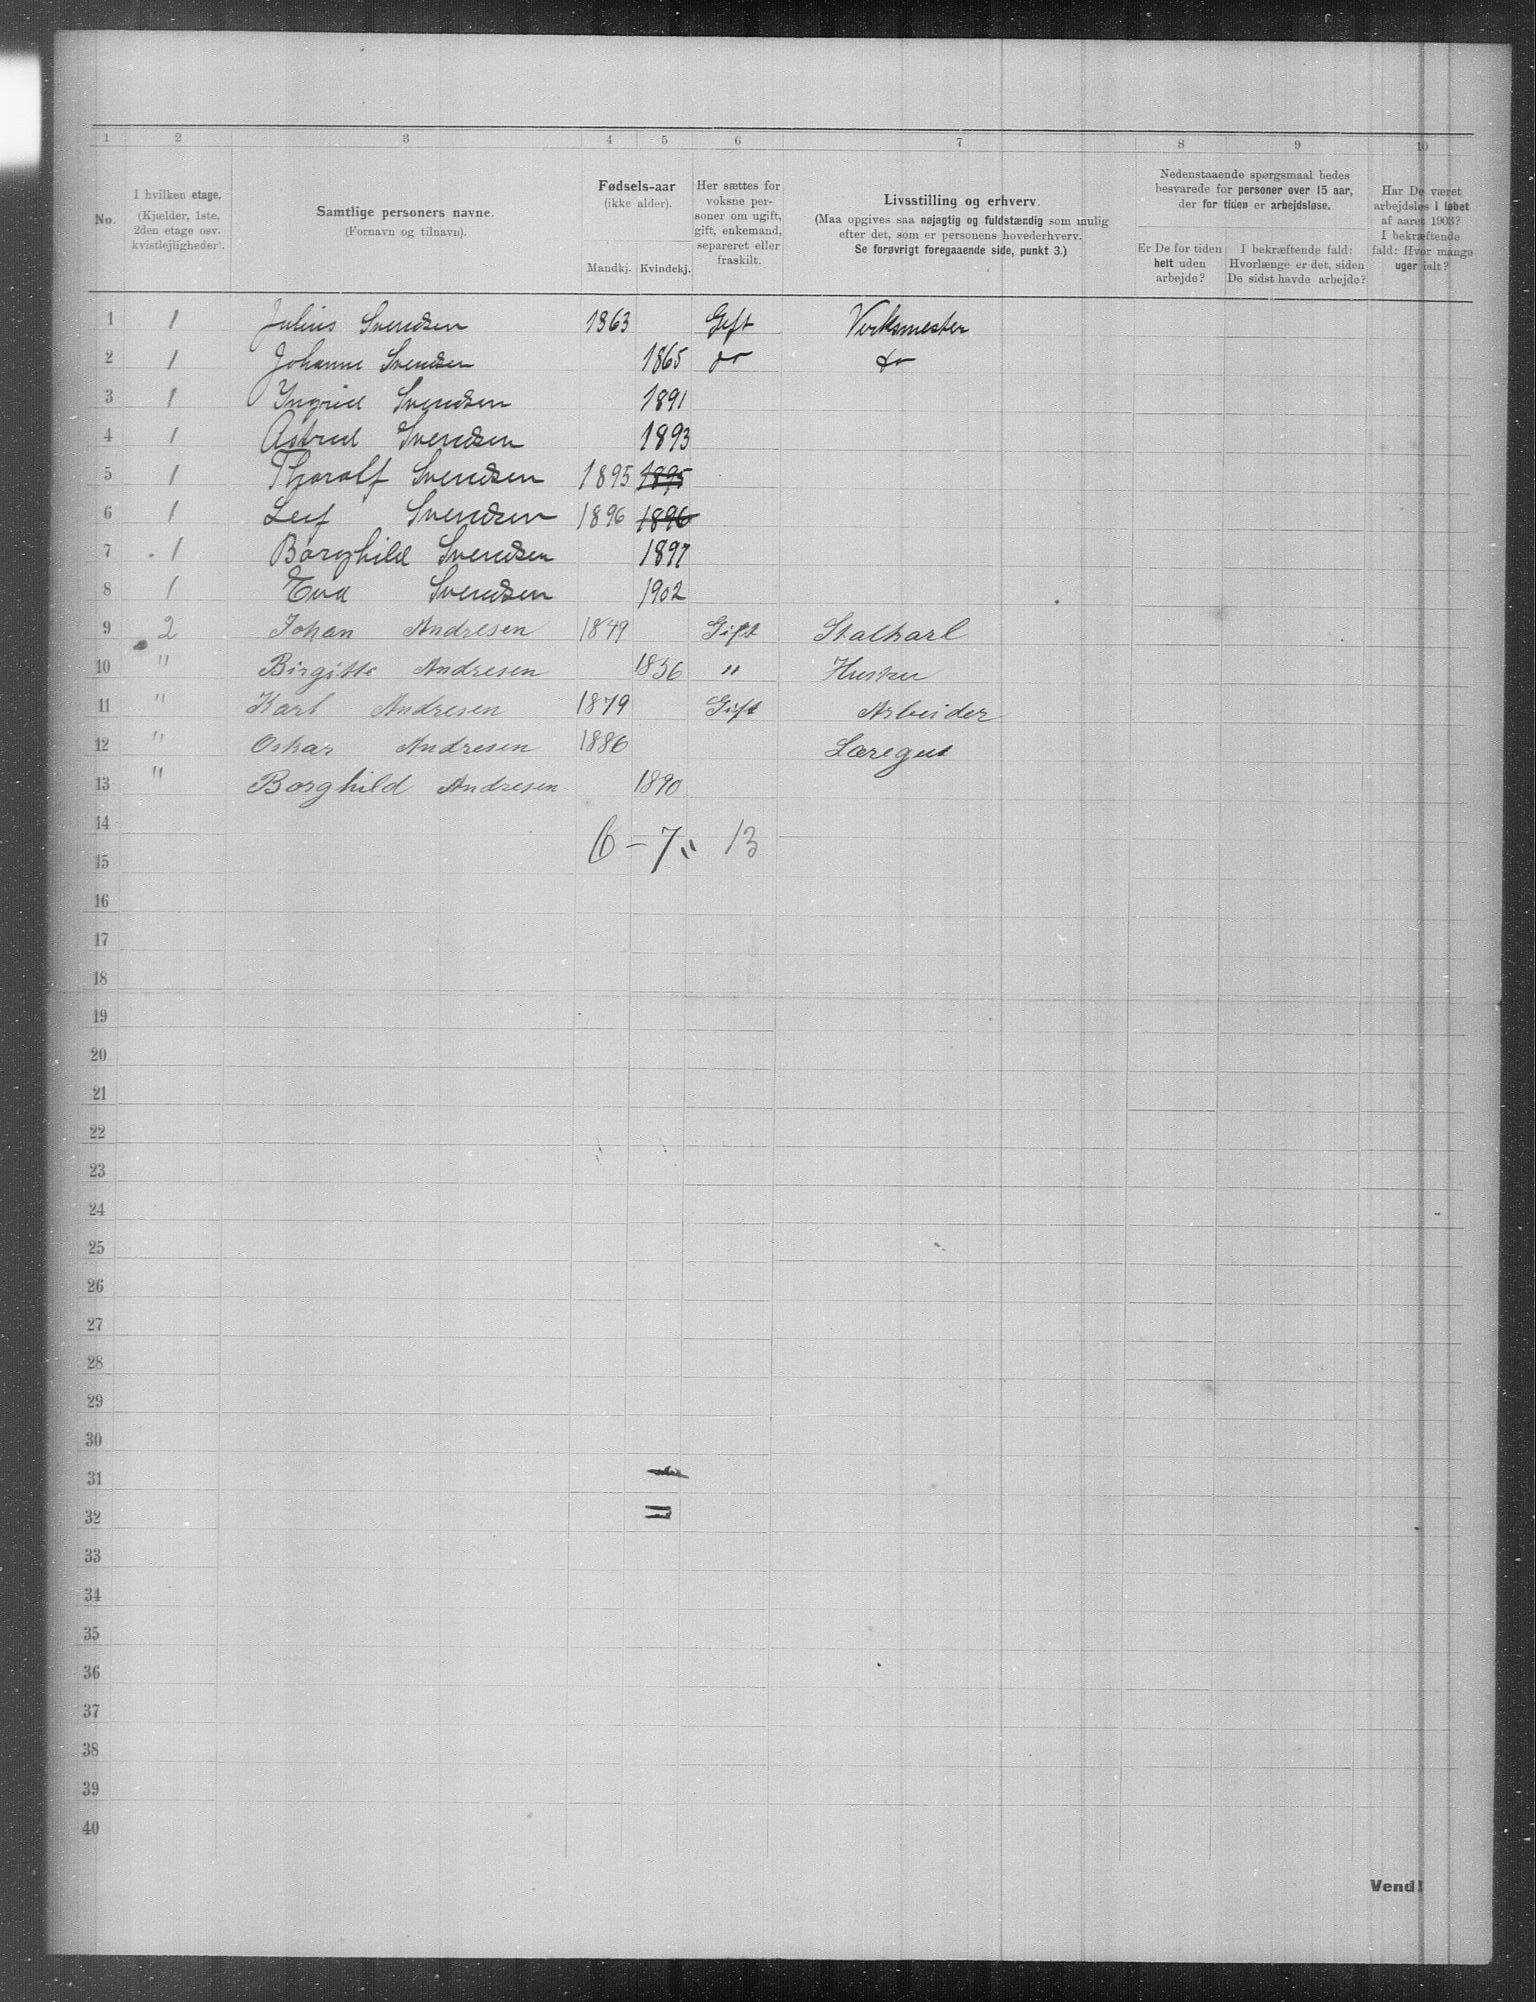 1 2 3 4 5 6 7 8 9 10
No.
I hvilken etage.
(Kjælder, 1ste,
2den etage osv.
kvistlejligheder).
Samtlige personers navne.
(Fornavn og tilnavn).
Fødsels-aar
(ikke alder).
Mandkj. Kvindekj.
Her sættes for
voksne per-
soner om ugift,
gift, enkemand,
separeret eller
fraskilt.
Livsstilling og erhverv.
(Maa opgives saa nøjagtig og fuldstændig som mulig
efter det, som er personens hovederhverv.
Se forøvrigt foregaaende side, punkt 3.)
Nedenstaaende spørgsmaal bedes
besvarede for personer over 15 aar,
der for tiden er arbejdsløse.
Er De for tiden
helt uden
arbejde?
I bekræftende fald:
Hvorlænge er det, siden
De sidst havde arbejde?
Har De været
arbejdsløs i løbet
af aaret 1903?
I bekræftende
fald: Hvor mange
uger ialt?
1 1 Julius Svendsen 1863 Gift Verksmester
2 1 Johanne Svendsen 1865 do do
3 1 Ingrid Svendsen 1891
4 1 Astrid Svendsen 1893
5 1 Thoralf Svendsen 1895 1895
6 1 Leif Svendsen 1896 1896
7 1 Borghild Svendsen 1897
8 1 Eva Svendsen 1902
9 2 Johan Andresen 1849 Gift Stalkarl
10 " Birgitte Andresen 1856 " Hustru
11 " Karl Andresen 1879 Gift Arbeider
12 " Oskar Andresen 1886 Læregut
13 " Borghild Andresen 1890
14
6 - 7 " 13
15
16
17
18
19
20
21
22
23
24
25
26
27
28
29
30
31
32
33
34
35
36
37
38
39
40
Vend!